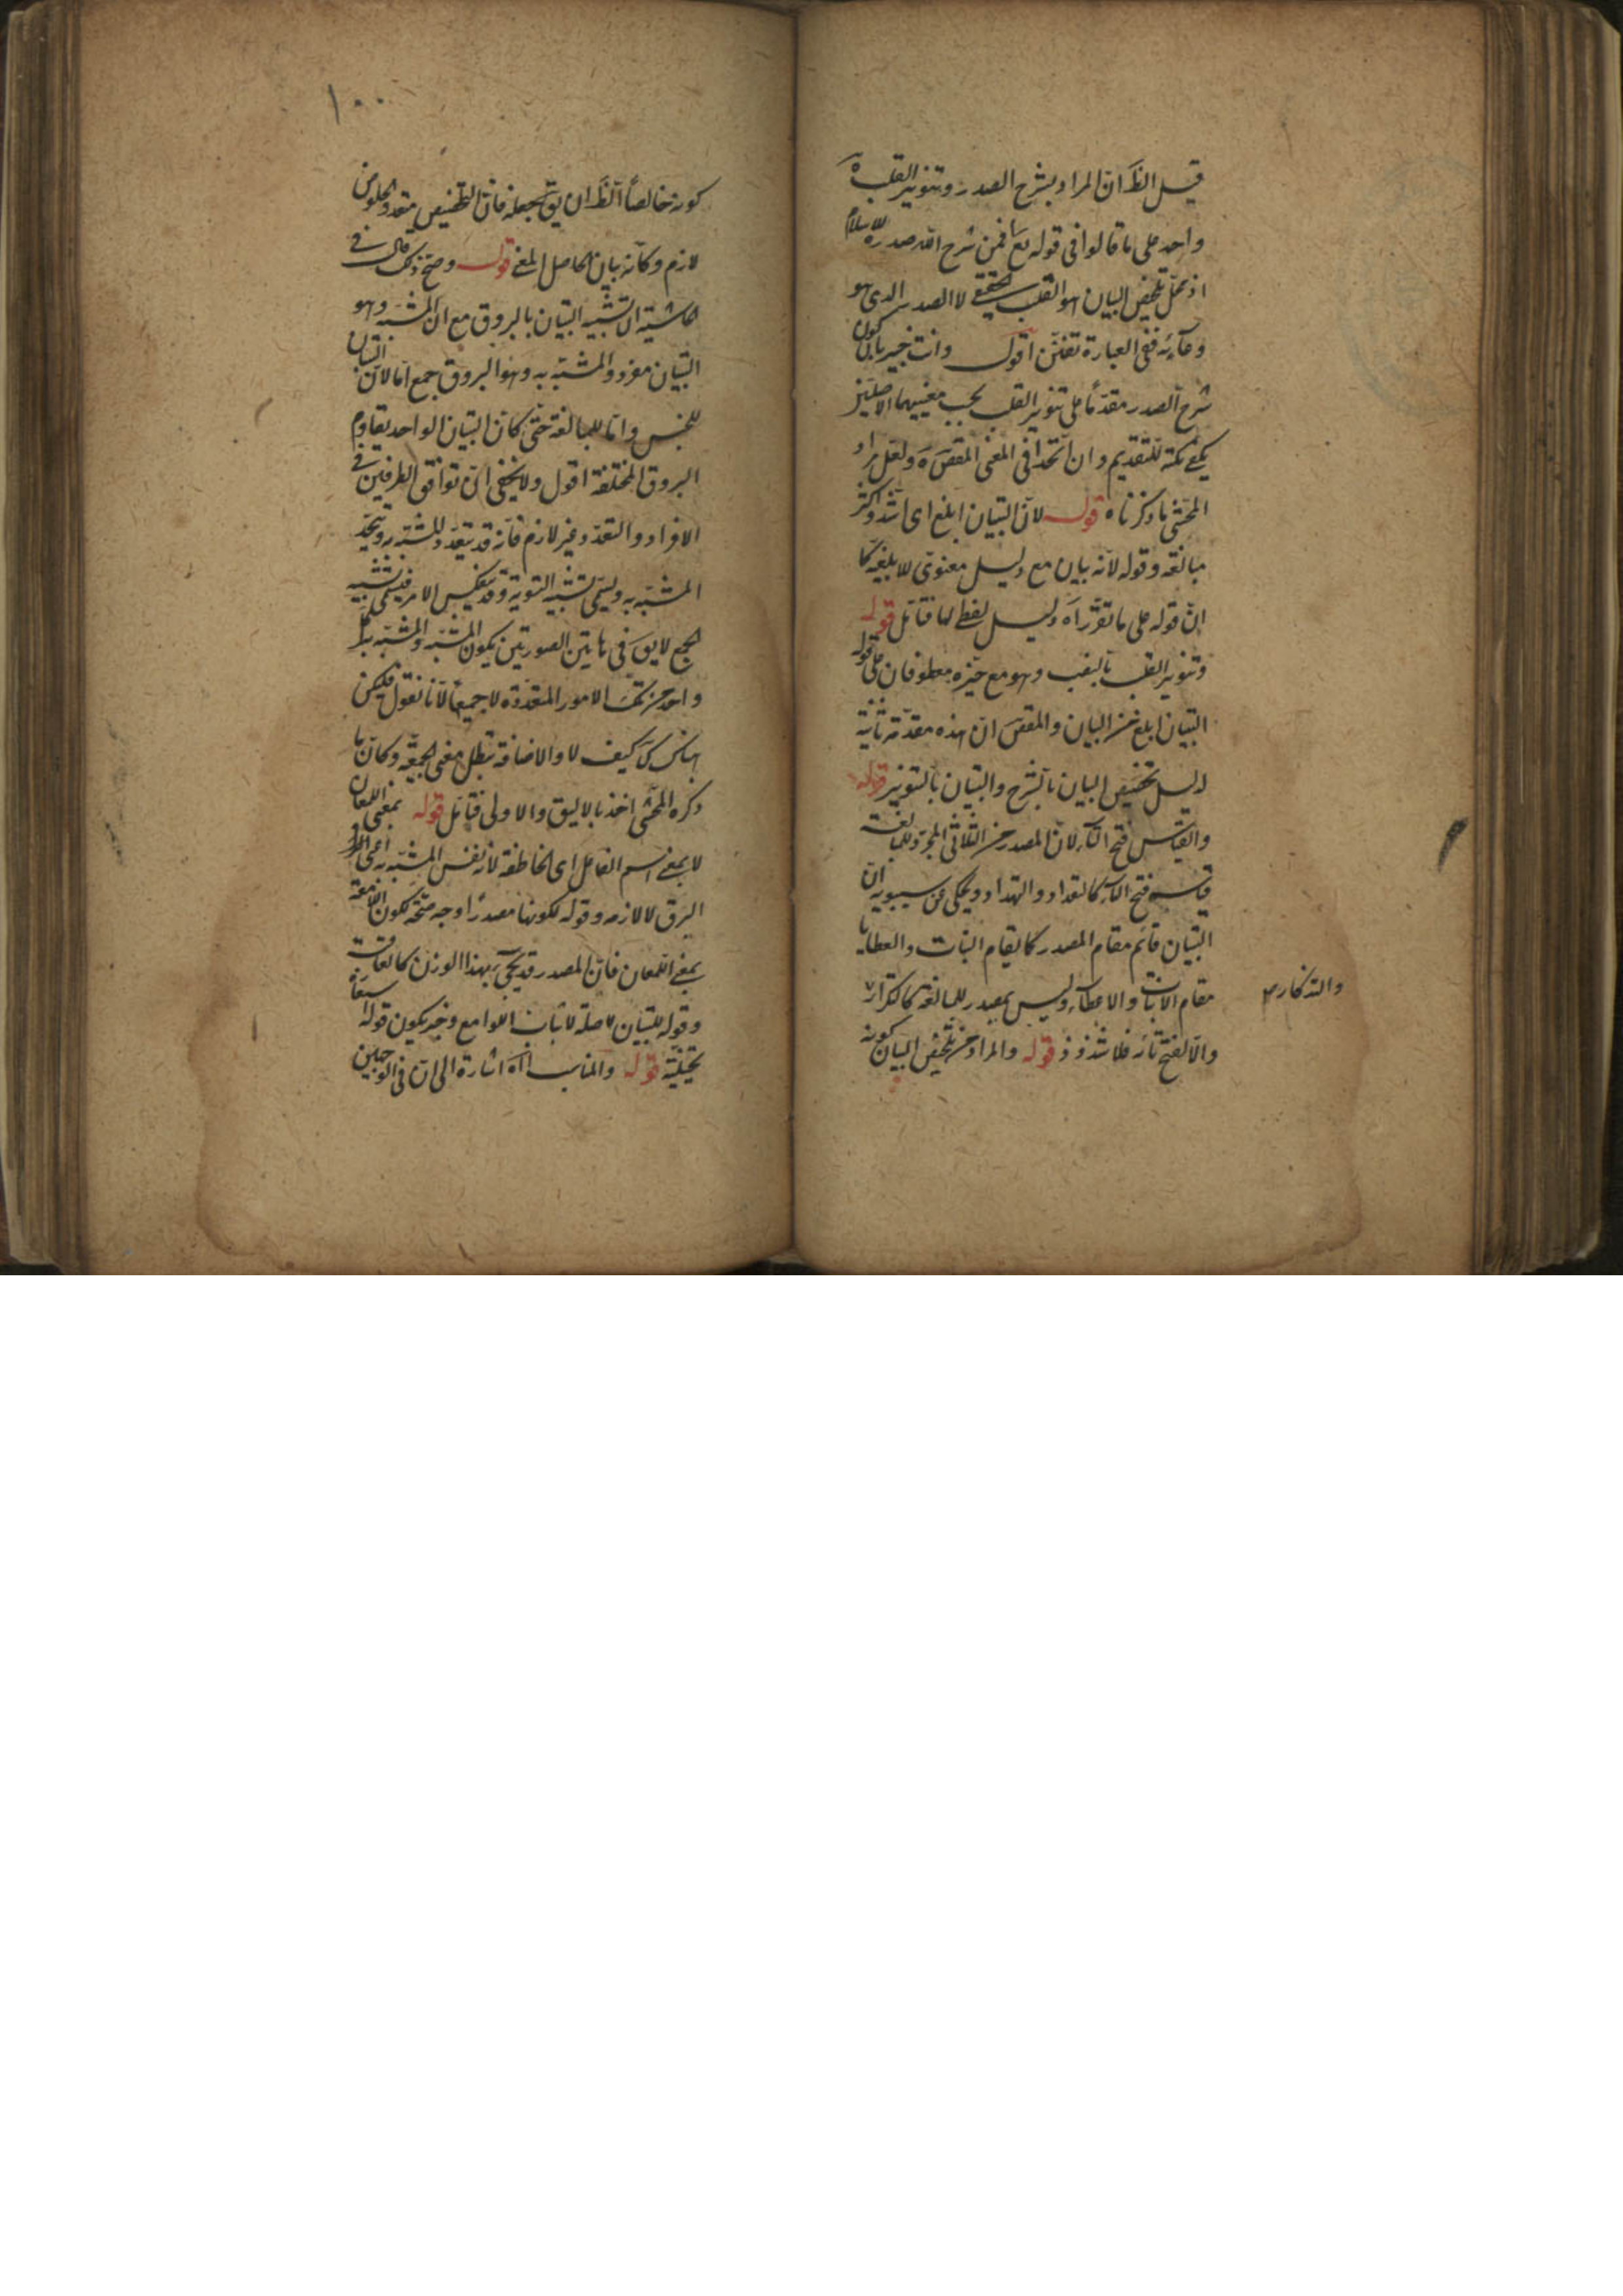 قيل الظَ ان المراد بشرح الصدر وتنوير القلب
واحد على ما قالوا في قوله تع افمن شرح الله صدره للاسلام
اذ محل تلخيص البيان هو القلب لا الصدر الذى هو
وعاءه ففى العبارة تفنن اقول وانت خبير بان كون
شرح الصدر مقدما على تنوير القلب بحسب معنييهما الاصليين
يكفى نكتة للتقديم وان اتحدا فى المعنى المقصَ ولعل مراد
المحشى ما ذكرناه قوله لان التبيان ابلغ اى اشد واكثر
مبالغة وقوله لانه بيان مع دليل معنوى للابلغية كما
ان قوله على ما تقرر اه دليل لفظى لها فتأمل قوله
وتنوير القلب بالنصب وهو مع حيزه معطوفان على قوله
التبيان ابلغ من البيان والمقصَ ان هذه مقدمة ثانية
لدليل تخصيص البيان بالشرح والتبيان بالتنوير قوله
والقياس فتح التاء لان المصدر من الثلاثى المجرد للمبالغة
قياسه فتح التاء كالتعداد والتهداد ويحكى عن سيبويه ان
التبيان قائم مقام المصدر كما يقام النبات والعطايا
مقام الانبات والاعطاء وليس بمصدر للمبالغة كالتكرار
والتذكار
والا لفتح تائه فلا شذوذ قوله والمراد من تلخيص البيان كونه
١٠٠
كونه خالصا الظَ ان يقَ جعله فان التلخيص متعد والخلوص
لازم وكانه بيان لحاصل المعنى قوله وصح ذلك قال فى
حاشيته ان تشبيه التبيان بالبروق مع ان المشبه وهو
التبيان مفرد والمشبه به وهو البروق جمع اما لان التبيان
للجنس واما للمبالغة حتى كان التبيان الواحد يقاوم
البروق المختلفة اقول ولا يخفى ان توافق الطرفين فى
الافراد والتعدد غير لازم فانه قد يتعدد المشبه ويتحد
المشبه به ويسمى تشبيه التسوية وقد ينعكس الامر فيسمى تشبيه
الجمع لا يقَ فى هاتين الصورتين يكون المشبه والمشبه به
واحد من تلك الامور المتعددة لا جميعا لانا نقول فليكن
هناك كَ كيف لا والاضافة تبطل معنى الجمعية وكان ما
ذكره المحشى اخذ بالاليق والاولى فتأمل قوله بمعنى اللمعان
لا بمعنى اسم الفاعل اى الخاطفة لانه نفس المشبه به اعنى
البرق لا لازمه وقوله لكونها مصدرا وجه صحة كون اللامعة
بمعنى اللمعان فان المصدر قد يجئ بهذا الوزن كالعاقبة
وقوله للتبيان صلة لاثبات اللوامع وح يكون قوله استعارة
تخييلية قوله والمناسب اه اشارة الى ان فى الوجهين